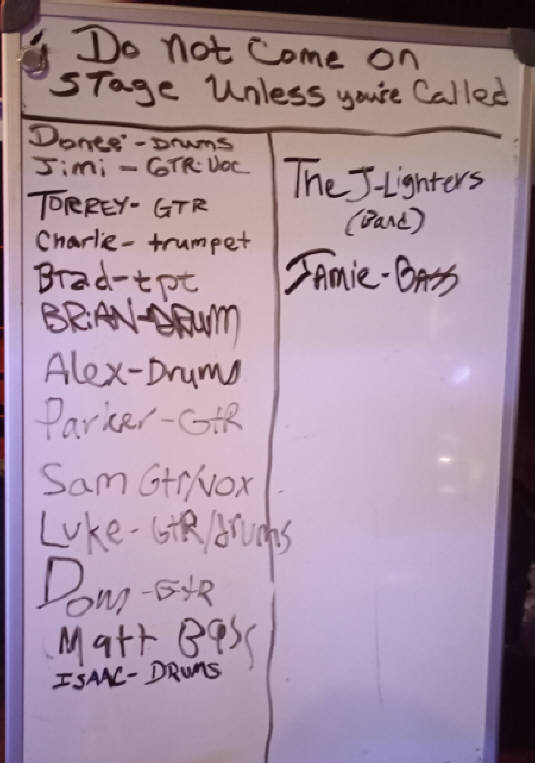 Do Not Come on
STage Unless you're Called
Dones - Drums
Jimi - GTR. Voc
TORREY- GTR
Charlie - trumpet
Brad-tpt
BRiAN-DRUM
Alex-Drums
Parker-GtR
Sam Gtr/vox
Luke-GtR/drums
Dom-GtR
Matt Bass
ISAAC- DRUMS
The J-Lighters
(Band)
JAmie-BAss